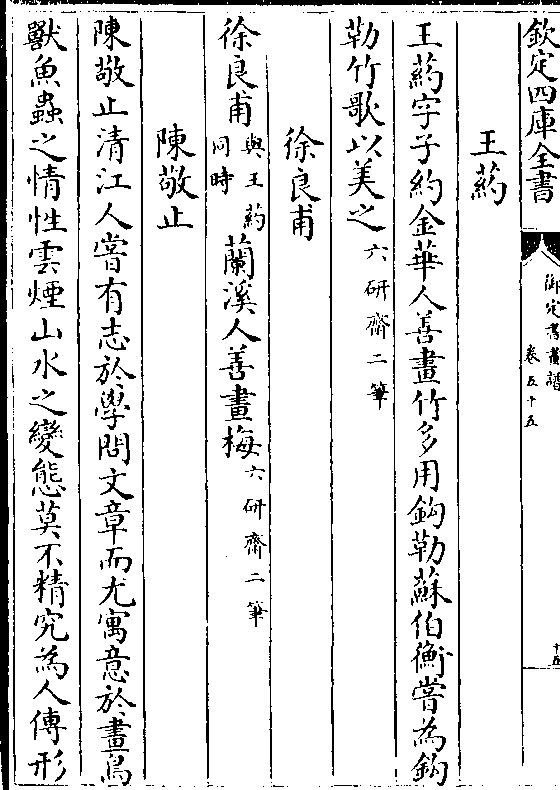 欽定四庫全書
御定書畫譜
卷五十五
十五
王葯
王葯字子約金華人善畫竹多用鈎勒蘇伯衡嘗為鈎
勒竹歌以美之六研齋二筆
徐良甫
徐良甫與王葯同時蘭溪人善畫梅六研齋二筆
陳敬止
陳敬止清江人嘗有志於學問文章而尤寓意於畫鳥
獸魚蟲之情性雲煙山水之變態莫不精究為人傳形